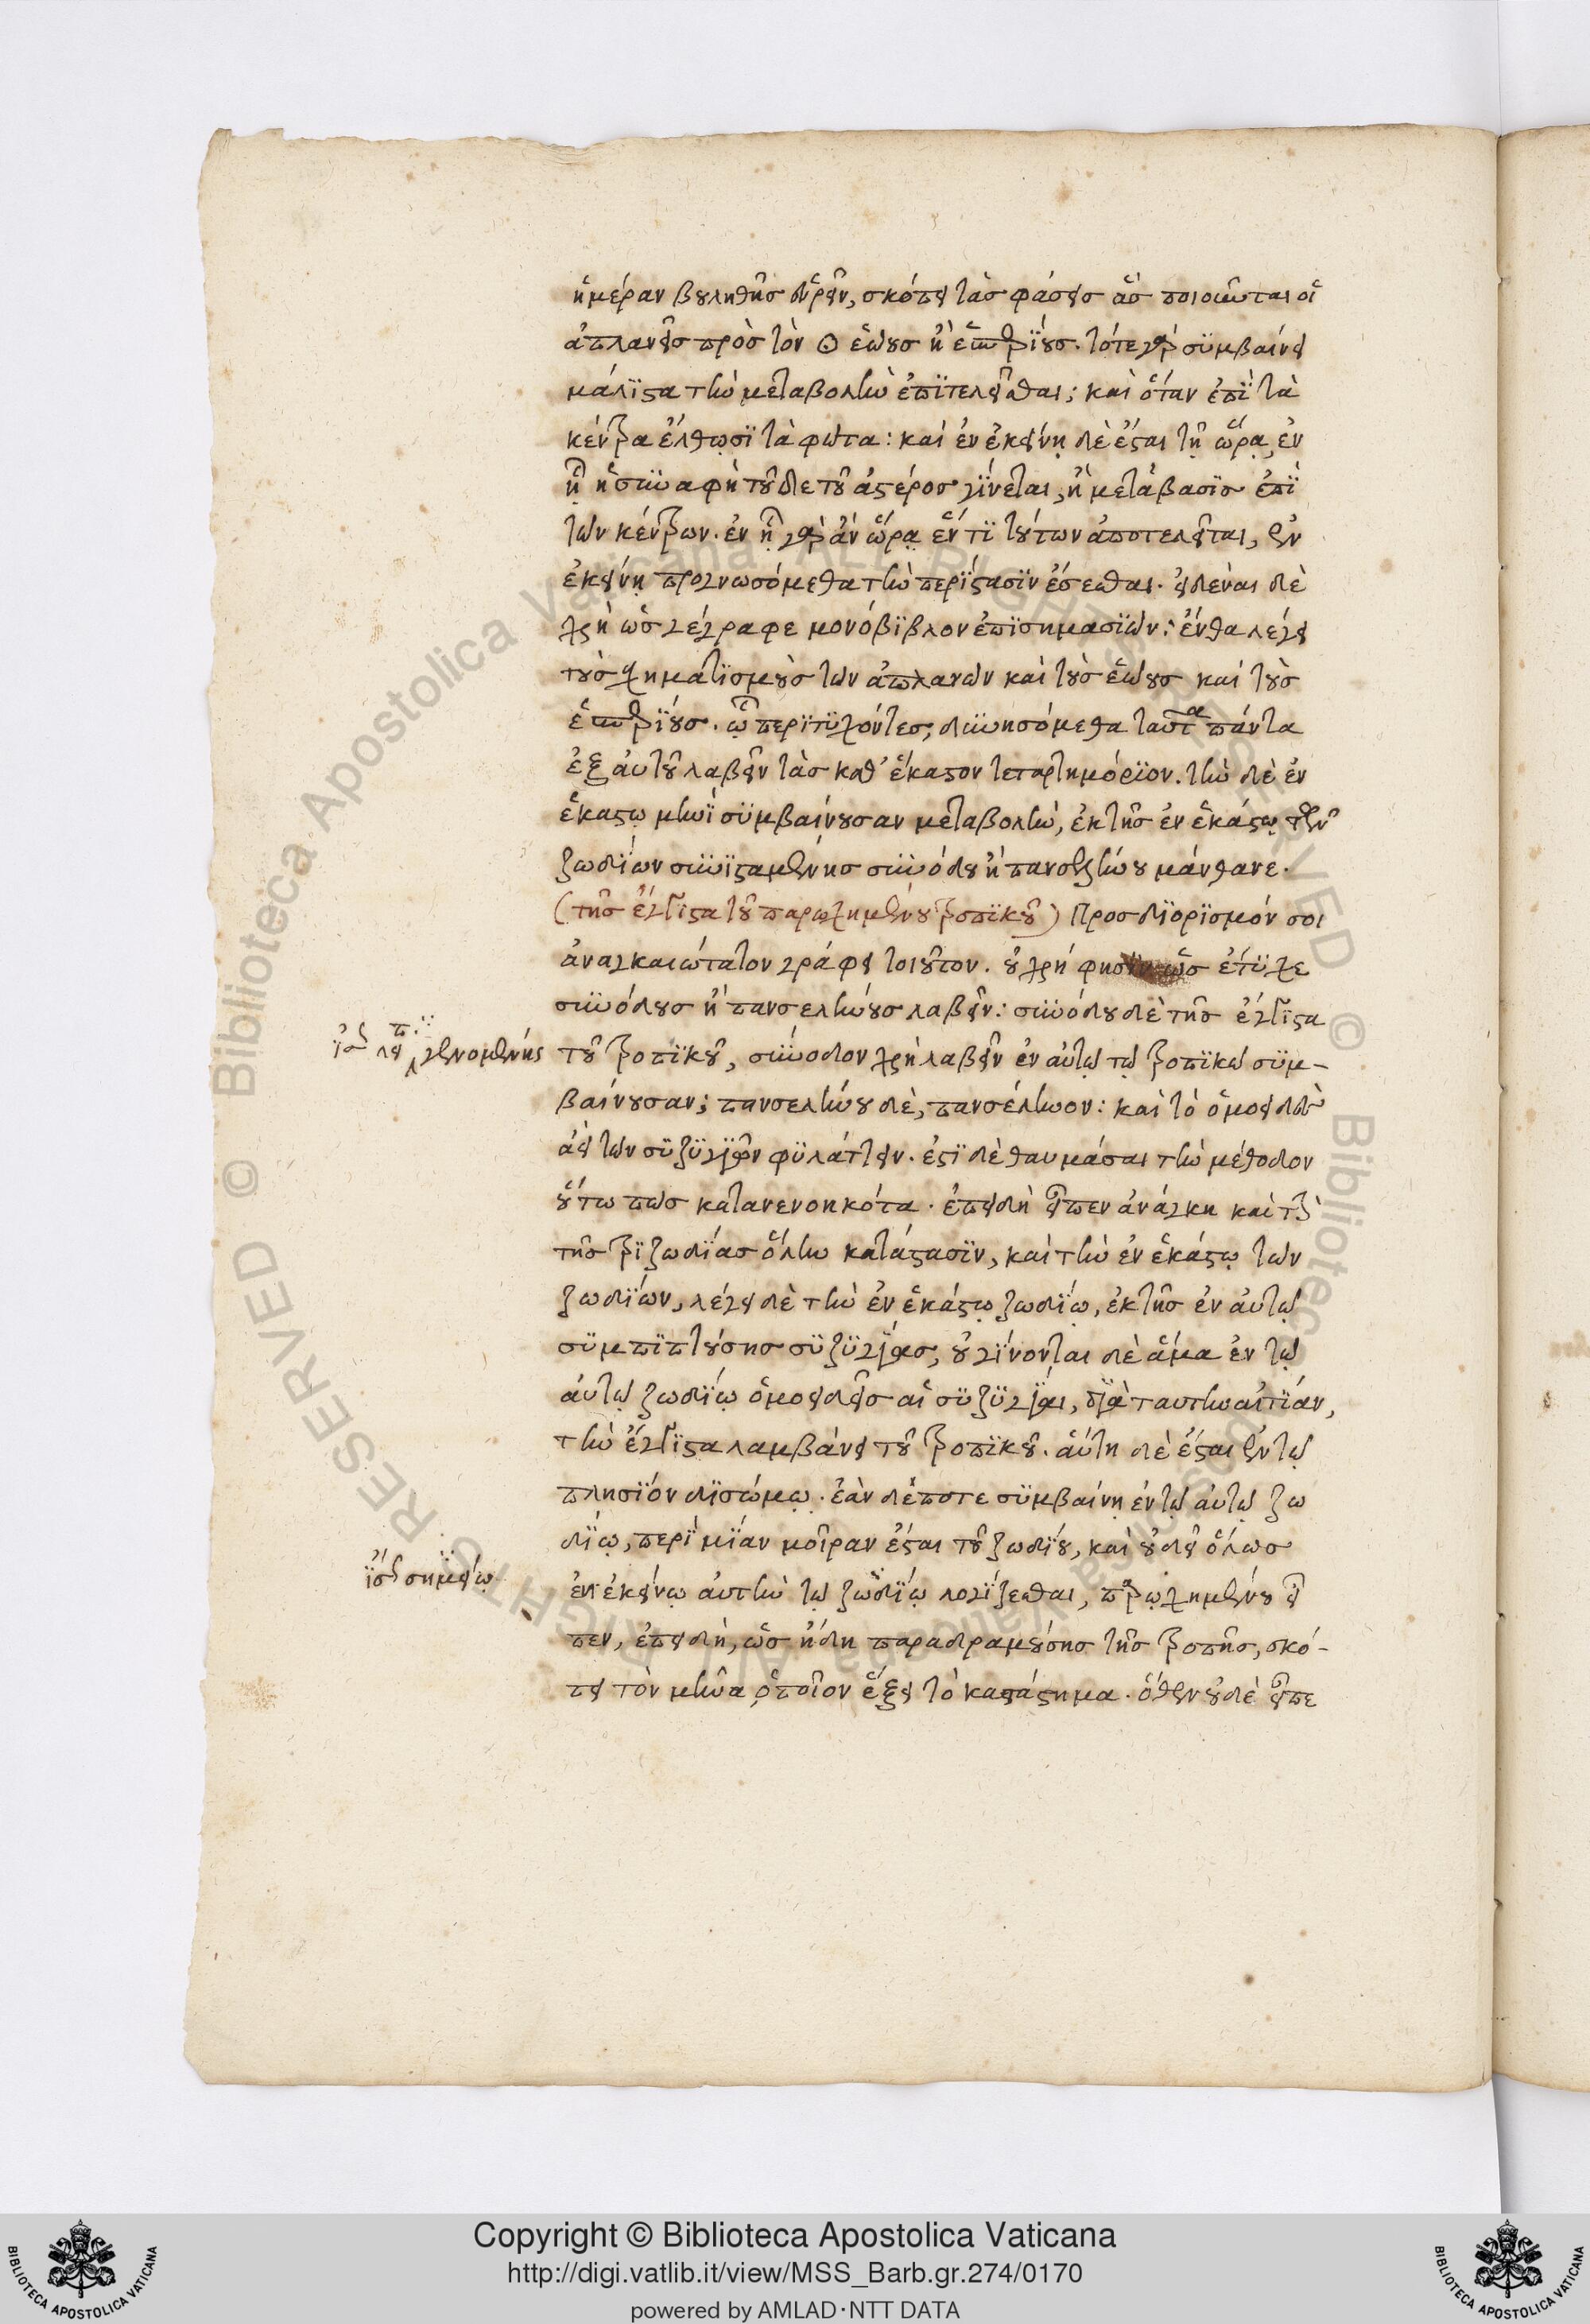 ἡμέραν βουληθῇς εὑρεῖν, σκόπει τὰς φάσεις ἃς ποιοῦνται οἱ
ἀπλανεῖς πρὸς τὸν ☉ ἑῴους ἢ ἑσπερίους. τότε γὰρ συμβαίνει
μάλιστα τὴν μεταβολὴν ἐπιτελεῖσθαι; καὶ ὅταν ἐπὶ τὰ
κέντρα ἔλθωσι τὰ φῶτα: καὶ ἐν ἐκείνῃ δὲ ἔσται τῇ ὥρᾳ, ἐν
ᾗ ἡ συναφὴ τοῦδε τοῦ ἀστέρος γίνεται, ἢ μετάβασις ἐπὶ
τῶν κέντρων. ἐν ᾗ γὰρ ἂν ὥρᾳ ἕν τι τούτων ἀποτελεῖται, ἐν
ἐκείνῃ προγνωσόμεθα τὴν περίστασιν ἔσεσθαι. εἰδέναι δὲ
χρὴ ὡς γέγραφε μονόβιβλον ἐπισημασιῶν: ἔνθα λέγει
τοὺς σχηματισμοὺς τῶν ἀπλανῶν καὶ τοὺς ἑῴους καὶ τοὺς
ἑσπερίους. ᾧ περιτυχόντες, δυνησόμεθα ταῦτα πάντα
ἐξ αὐτοῦ λαβεῖν τὰς καθ' ἕκαστον τεταρτημόριον. τὴν δὲ ἐν
ἑκάστῳ μηνὶ συμβαίνουσαν μεταβολὴν, ἐκ τῆς ἐν ἑκάστῳ τῶν
ζωδίων συνισταμένης συνόδου ἢ πανσελήνου μάνθανε.
(τῆς ἔγγιστα τοῦ παρῳχημένου τροπικοῦ) Προσδιορισμόν σοι
ἀναγκαιώτατον γράφει τοιοῦτον. οὐ χρή φησιν ὡς ἔτυχε
συνόδους ἢ πανσελήνους λαβεῖν: συνόδου δὲ τῆς ἔγγιστα
τοῦ τροπικοῦ, σύνοδον χρὴ λαβεῖν ἐν αὐτῷ τῷ τροπικῷ συμ-
γενομένης
βαίνουσαν; πανσελήνου δὲ, πανσέληνον: καὶ τὸ ὁμοειδὲς
ἀεὶ τῶν συζυγιῶν φυλάττειν. ἔστι δὲ θαυμάσαι τὴν μέθοδον
οὕτω πως κατανενοηκότα. ἐπειδὴ εἶπεν ἀνάγκη καὶ τὴν
τῆς τριζωδίας ὅλην κατάστασιν, καὶ τὴν ἐν ἑκάστῳ τῶν
ζωδίων, λέγει δὲ τὴν ἐν ἑκάστῳ ζωδίῳ, ἐκ τῆς ἐν αὐτῷ
συμπιπτούσης συζυγίας, οὐ γίνονται δὲ ἅμα ἐν τῷ
αὐτῷ ζωδίῳ ὁμοειδεῖς αἱ συζυγίαι, διὰ ταύτην αἰτίαν,
τὴν ἔγγιστα λαμβάνει τοῦ τροπικοῦ. αὕτη δὲ ἔσται ἐν τῷ
πλησίον δισώμῳ. ἐὰν δέποτε συμβαίνῃ ἐν τῷ αὐτῷ ζω
δίῳ, περὶ μίαν μοῖραν ἔσται τοῦ ζωδίου, καὶ οὐ δεῖ ὅλως
σημείῳ
ἐν ἐκείνῳ αὐτὴν τῷ ζωδίῳ λογίζεσθαι, παρῳχημένου εἶ
πεν, ἐπειδὴ, ὡς ἤδη παραδραμούσης τῆς τροπῆς, σκό-
πει τὸν μῆνα, ὁποῖον ἕξει τὸ κατάστημα. ὅθεν οὐδὲ εἶπε
Copyright © Biblioteca Apostolica Vaticana
http://digi.vatlib.it/view/MSS_Barb.gr.274/0170
powered by AMLAD · NTT DATA
BIBLIOTECA APOSTOLICA VATICANA
BIBLIOTECA APOSTOLICA VATICANA